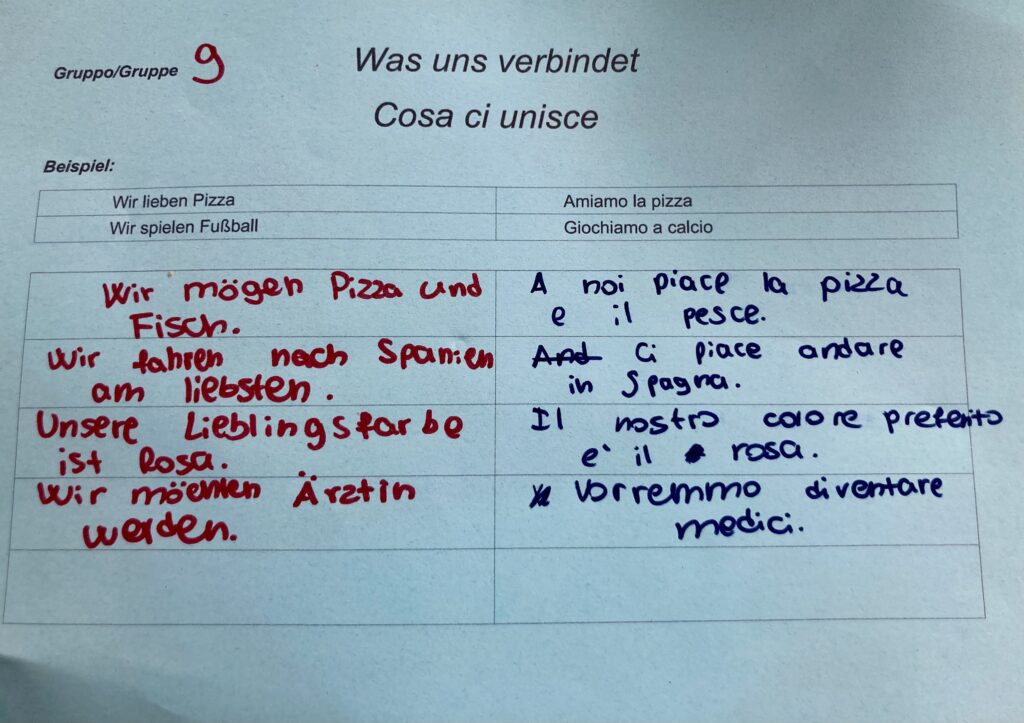 Gruppo/Gruppe 9
Was uns verbindet
Cosa ci unisce
Beispiel:
Wir lieben Pizza
Amiamo la pizza
Wir spielen Fußball
Giochiamo a calcio
Wir mögen Pizza und
Fisch.
A noi piace la pizza
e il pesce.
Wir fahren nach Spanien
am liebsten.
And Ci piace andare
in Spagna.
Unsere Lieblingsfarbe
ist Rosa.
Il nostro colore preferito
e' il rosa.
Wir möchten Ärztin
werden.
Vorremmo diventare
medici.